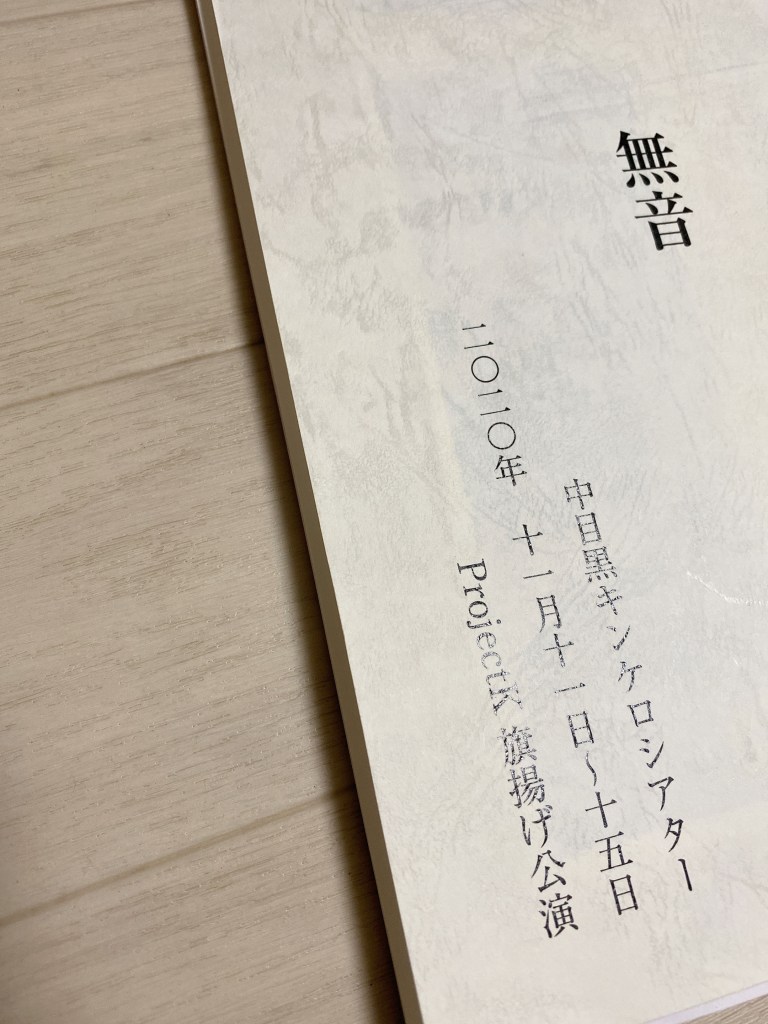 無音
中目黒キンケロシアター
二〇二〇年 十一月十一日〜十五日
ProjectK 旗揚げ公演